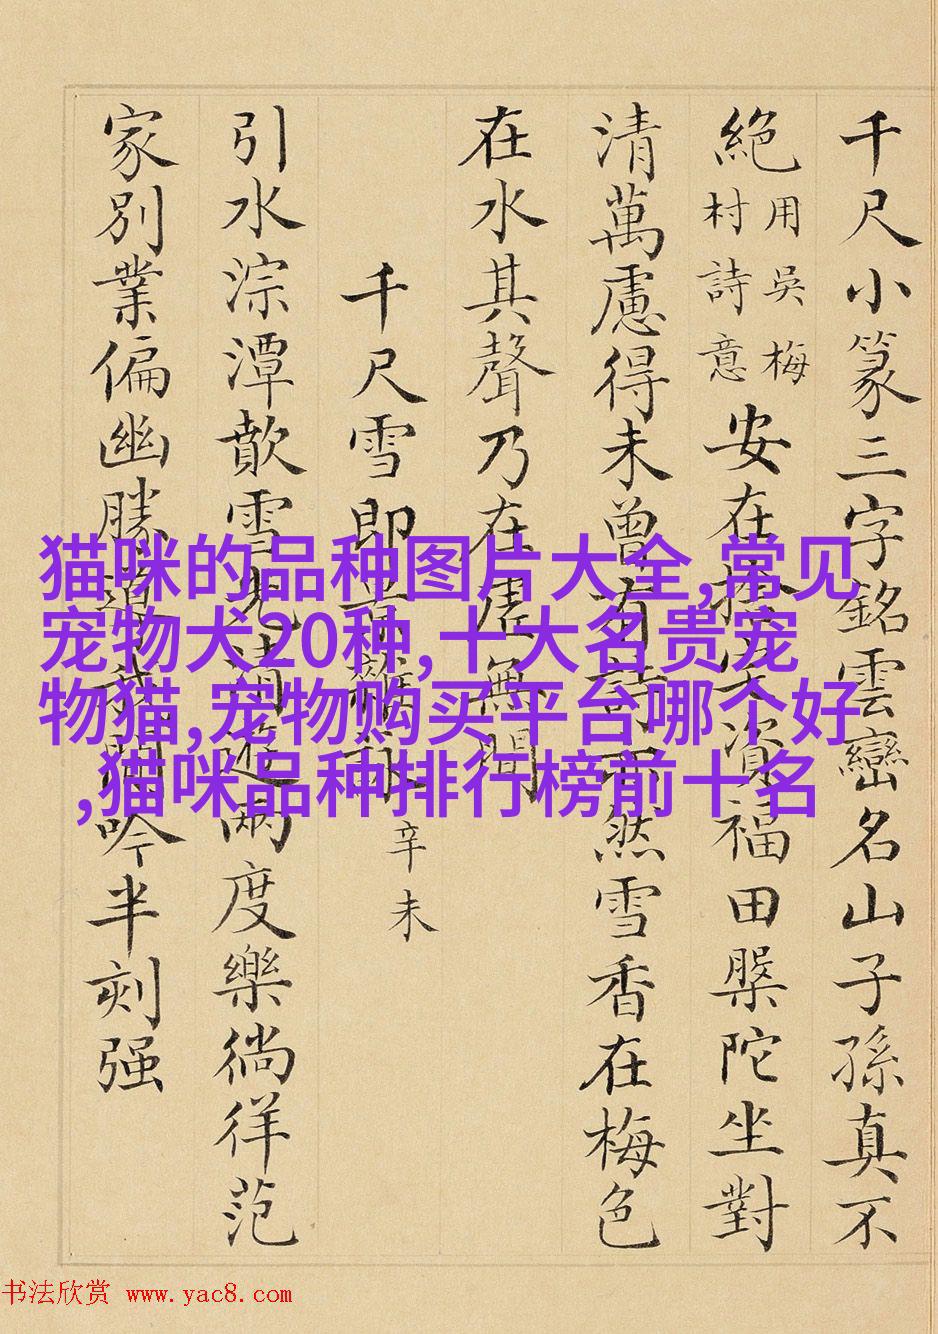 千尺小篆三字銘雲巒名山子孫真不
絕
用吳梅
村詩意
安在資福田槃陀坐對
清萬慮得未曾有詩而然雪香在梅色
在水其聲乃在虛無間
千尺雪即景雜詠
辛未
引水淙潭歕雪遊兩度樂徜徉范
家別業偏幽勝吟半刻强
猫咪的品种图片大全,常见
宠物犬20种,十大名贵宠
物猫,宠物购买平台哪个好
,猫咪品种排行榜前十名
书法欣赏 www.yac8.com